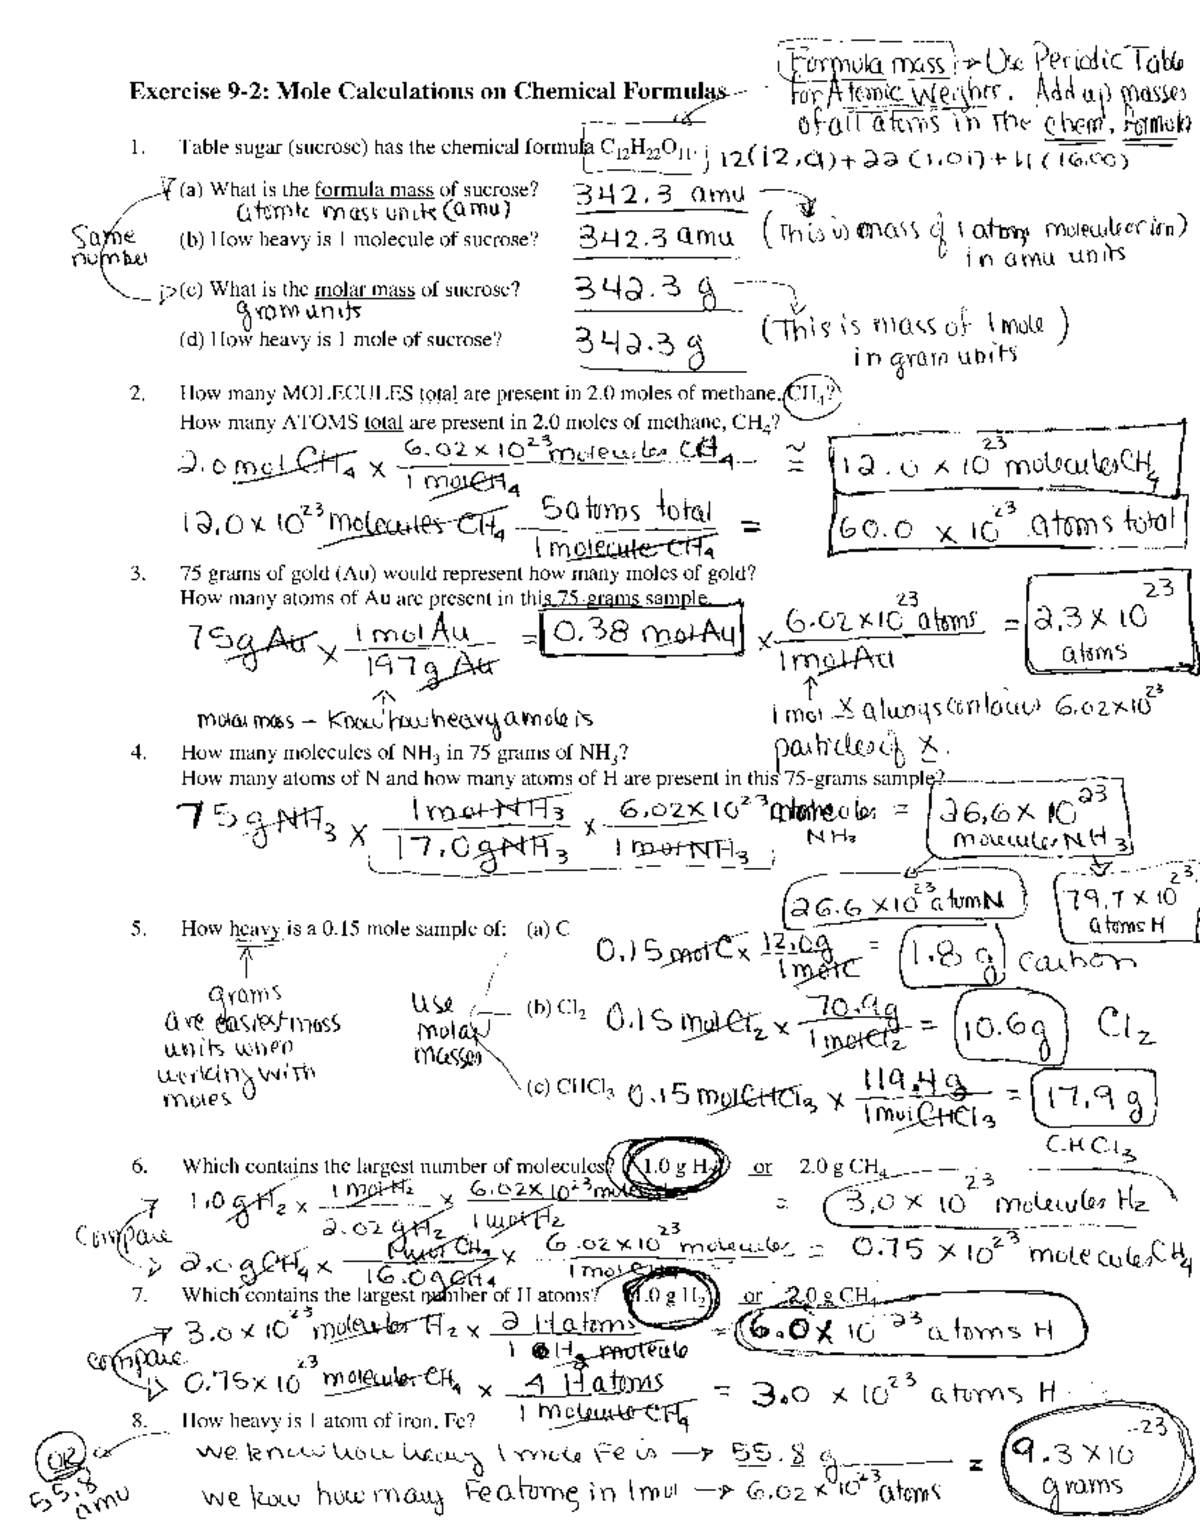 Formula mass → Use Periodic Table
for Atomic Weights. Add up masses
of all atoms in the chem. formula
Exercise 9-2: Mole Calculations on Chemical Formulas
1. Table sugar (sucrose) has the chemical formula C₁₂H₂₂O₁₁. ; 12(12.01)+22(1.01)+11(16.00)
(a) What is the formula mass of sucrose? 342.3 amu
atomic mass units (amu)
Same number
(b) How heavy is 1 molecule of sucrose? 342.3 amu (This is mass of 1 atom, molecule or ion)
in amu units
(c) What is the molar mass of sucrose? 342.3 g
gram units
(This is mass of 1 mole)
in gram units
(d) How heavy is 1 mole of sucrose? 342.3 g
2. How many MOLECULES total are present in 2.0 moles of methane, CH₄?
How many ATOMS total are present in 2.0 moles of methane, CH₄?
2.0 mol CH₄ × 6.02×10²³ molecules CH₄ / 1 mol CH₄ ≅ 12.0 × 10²³ molecules CH₄
12.0 × 10²³ molecules CH₄ 5 atoms total / 1 molecule CH₄ = 60.0 × 10²³ atoms total
3. 75 grams of gold (Au) would represent how many moles of gold?
How many atoms of Au are present in this 75-grams sample.
75g Au × 1 mol Au / 197g Au = 0.38 mol Au × 6.02×10²³ atoms / 1 mol Au = 2.3 × 10²³ atoms
molar mass – Know how heavy a mole is
1 mol X always contains 6.02×10²³
particles of X.
4. How many molecules of NH₃ in 75 grams of NH₃?
How many atoms of N and how many atoms of H are present in this 75-grams sample?
75 g NH₃ × 1 mol NH₃ / 17.0g NH₃ × 6.02×10²³ molecules NH₃ / 1 mol NH₃ = 26.6 × 10²³ molecules NH₃
26.6 ×10²³ atom N
79.7 × 10²³ atoms H
5. How heavy is a 0.15 mole sample of: (a) C 0.15 mol C × 12.0g / 1 mol C = 1.8 g carbon
grams
are easiest mass
units when
working with
moles
use
molar
masses
(b) Cl₂ 0.15 mol Cl₂ × 70.9g / 1 mol Cl₂ = 10.6g Cl₂
(c) CHCl₃ 0.15 mol CHCl₃ × 119.4g / 1 mol CHCl₃ = 17.9 g
CHCl₃
6. Which contains the largest number of molecules? 1.0 g H₂ or 2.0 g CH₄
compare
1.0 g H₂ × 1 mol H₂ / 2.02 g H₂ × 6.02×10²³ molecules / 1 mol H₂ = 3.0 × 10²³ molecules H₂
2.0 g CH₄ × 1 mol CH₄ / 16.0g CH₄ × 6.02×10²³ molecules / 1 mol CH₄ = 0.75 × 10²³ molecules CH₄
7. Which contains the largest number of H atoms? 1.0 g H₂ or 2.0 g CH₄
compare
3.0 × 10²³ molecules H₂ × 2 H atoms / 1 H₂ molecule = 6.0 × 10²³ atoms H
0.75 × 10²³ molecules CH₄ × 4 H atoms / 1 molecule CH₄ = 3.0 × 10²³ atoms H
8. How heavy is 1 atom of iron, Fe?
OR
55.8
amu
we know how heavy 1 mole Fe is → 55.8 g
we know how many Fe atoms in 1 mol → 6.02 × 10²³ atoms
= 9.3 × 10⁻²³
grams